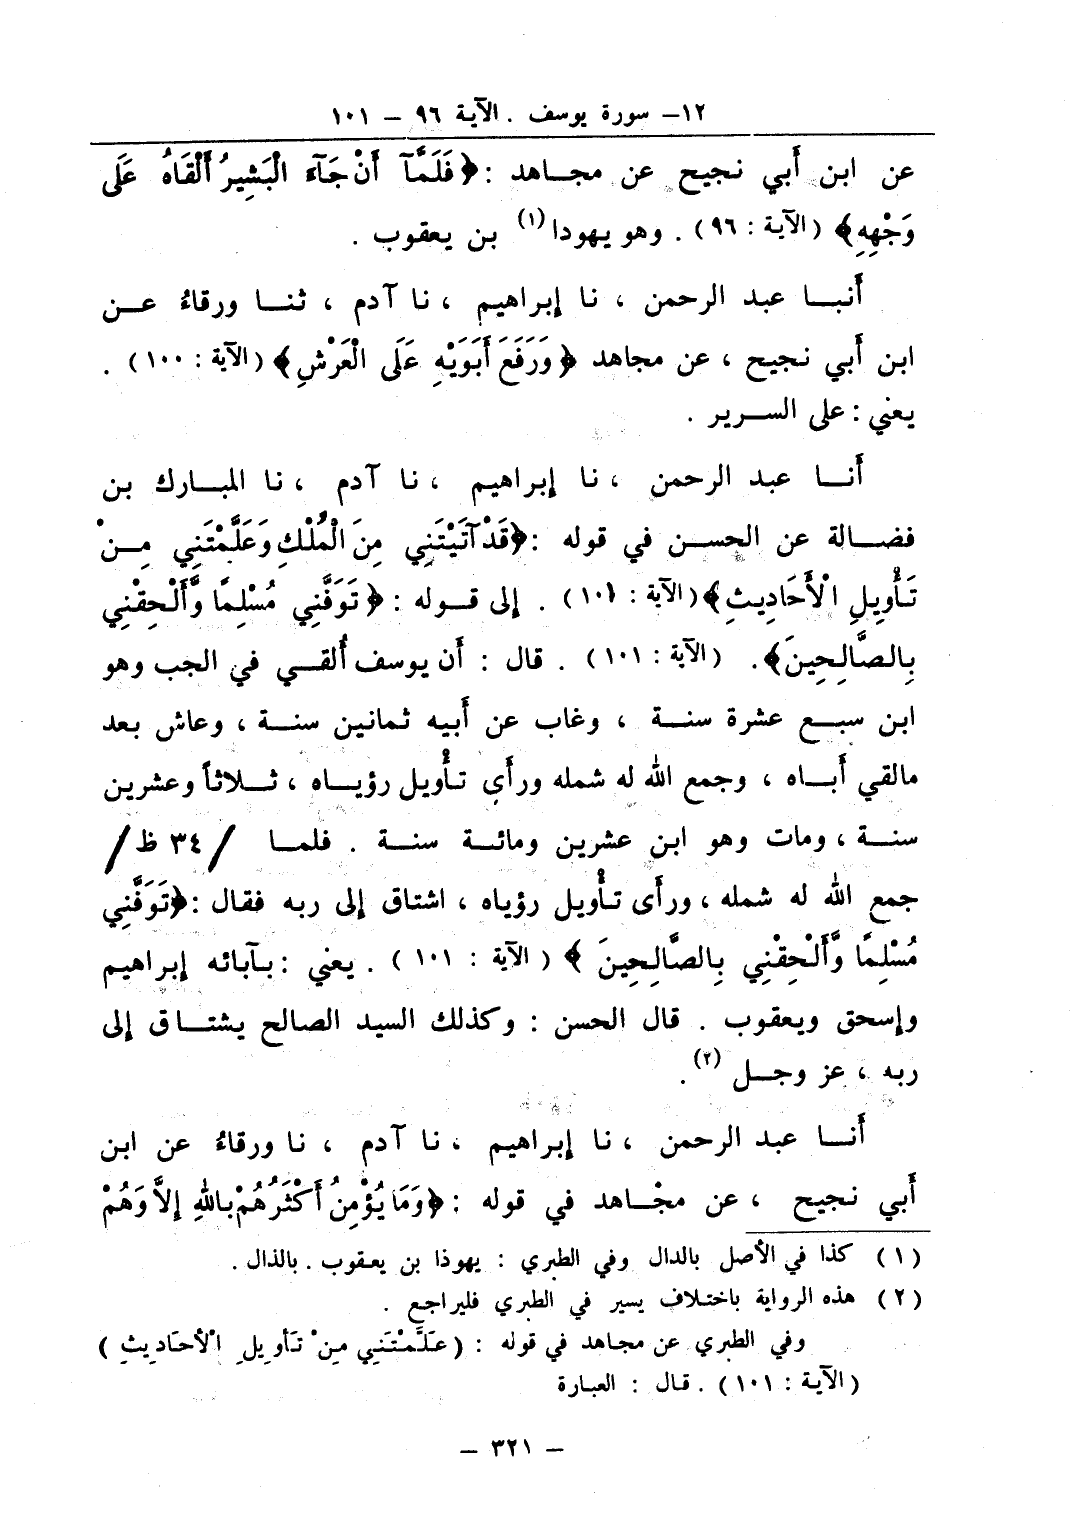 ١٢- سورة يوسف . الآية ٩٦ - ١٠١
عن ابن أبي نجيح عن مجاهد : ﴿فَلَمَّآ أَنْ جَآءَ الْبَشِيرُ أَلْقَاهُ عَلَى
وَجْهِهِ﴾ (الآية : ٩٦) . وهو يهودا (١) بن يعقوب .
أنبا عبد الرحمن ، نا إبراهيم ، نا آدم ، ثنا ورقاءُ عن
ابن أبي نجيح ، عن مجاهد ﴿وَرَفَعَ أَبَوَيْهِ عَلَى الْعَرْشِ﴾ (الآية : ١٠٠) .
يعني : على السرير .
أنا عبد الرحمن ، نا إبراهيم ، نا آدم ، نا المبارك بن
فضالة عن الحسن في قوله : ﴿قَدْ آتَيْتَنِي مِنَ الْمُلْكِ وَعَلَّمْتَنِي مِنْ
تَأْوِيلِ الْأَحَادِيثِ﴾ (الآية : ١٠١) . إلى قوله : ﴿تَوَفَّنِي مُسْلِمًا وَّأَلْحِقْنِي
بِالصَّالِحِينَ﴾ . (الآية : ١٠١) . قال : أن يوسف أُلقي في الجب وهو
ابن سبع عشرة سنة ، وغاب عن أبيه ثمانين سنة ، وعاش بعد
مالقي أباه ، وجمع الله له شمله ورأى تأويل رؤياه ، ثلاثاً وعشرين
سنة ، ومات وهو ابن عشرين ومائة سنة . فلما / ٣٤ ظ /
جمع الله له شمله ، ورأى تأويل رؤياه ، اشتاق إلى ربه فقال : ﴿تَوَفَّنِي
مُسْلِمًا وَّأَلْحِقْنِي بِالصَّالِحِينَ ﴾ ( الآية : ١٠١ ) . يعني : بآبائه إبراهيم
وإسحق ويعقوب . قال الحسن : وكذلك السيد الصالح يشتاق إلى
ربه ، عز وجل (٢) .
أنا عبد الرحمن ، نا إبراهيم ، نا آدم ، نا ورقاءُ عن ابن
أبي نجيح ، عن مجاهد في قوله : ﴿وَمَا يُؤْمِنُ أَكْثَرُهُمْ بِاللهِ إِلاَّ وَهُمْ
(١) كذا في الأصل بالدال وفي الطبري : يهوذا بن يعقوب . بالذال .
(٢) هذه الرواية باختلاف يسير في الطبري فليراجع .
وفي الطبري عن مجاهد في قوله : ( عَلَّمْتَنِي مِنْ تَأْوِيلِ الْأَحَادِيثِ )
(الآية : ١٠١) . قال : العبارة
- ٣٢١ -